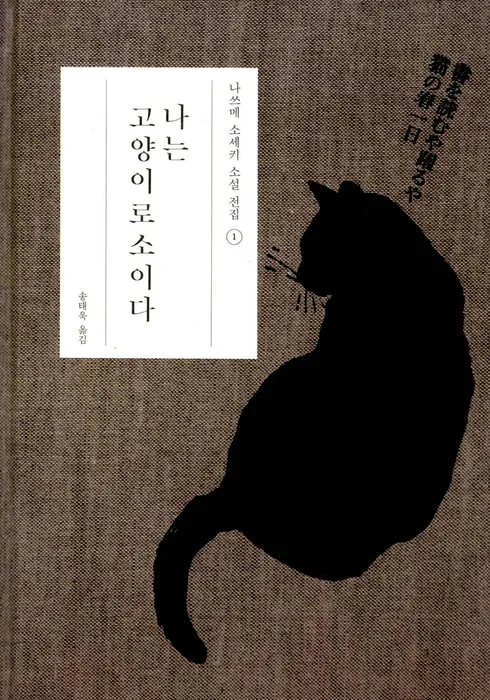 나쓰메 소세키 소설 전집 1
나는
고양이로소이다
송태욱 옮김
書を読むや躍るや
猫の春一日